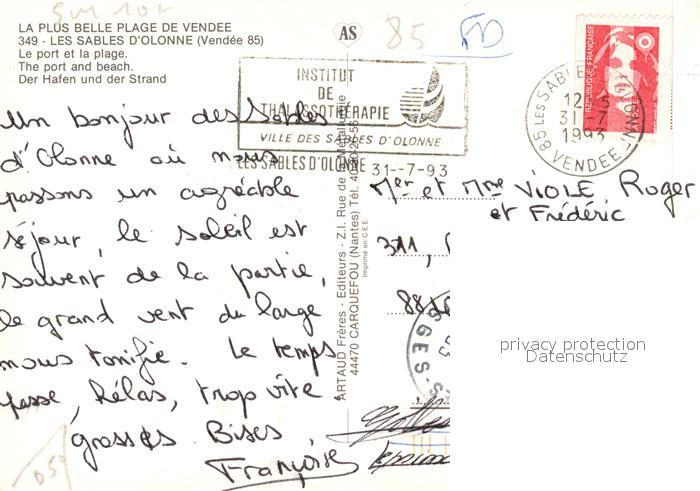 LA PLUS BELLE PLAGE DE VENDEE
349 - LES SABLES D'OLONNE (Vendée 85)
Le port et la plage.
The port and beach.
Der Hafen und der Strand
AS
85
INSTITUT
DE
THALASSOTHÉRAPIE
VILLE DES SABLES D'OLONNE
LES SABLES D'OLONNE 31-7-93
RÉPUBLIQUE FRANÇAISE
85 LES SABLES D'OLONNE
31-7
1993
VENDEE
Un bonjour des Sables
d'Olonne où nous
passons un agréable
séjour, le soleil est
souvent de la partie,
le grand vent du large
nous tonifie. Le temps
passe, hélas, trop vite.
grosses Bises,
Françoise
ARTAUD Frères - Editeurs - Z.I. Rue de la Métallurgie
44470 CARQUEFOU (Nantes) Tél. 40
Imprimé en C.E.E.
Mer et Mme VIOLE Roger
et Frédéric
311,
88
privacy protection
Datenschutz